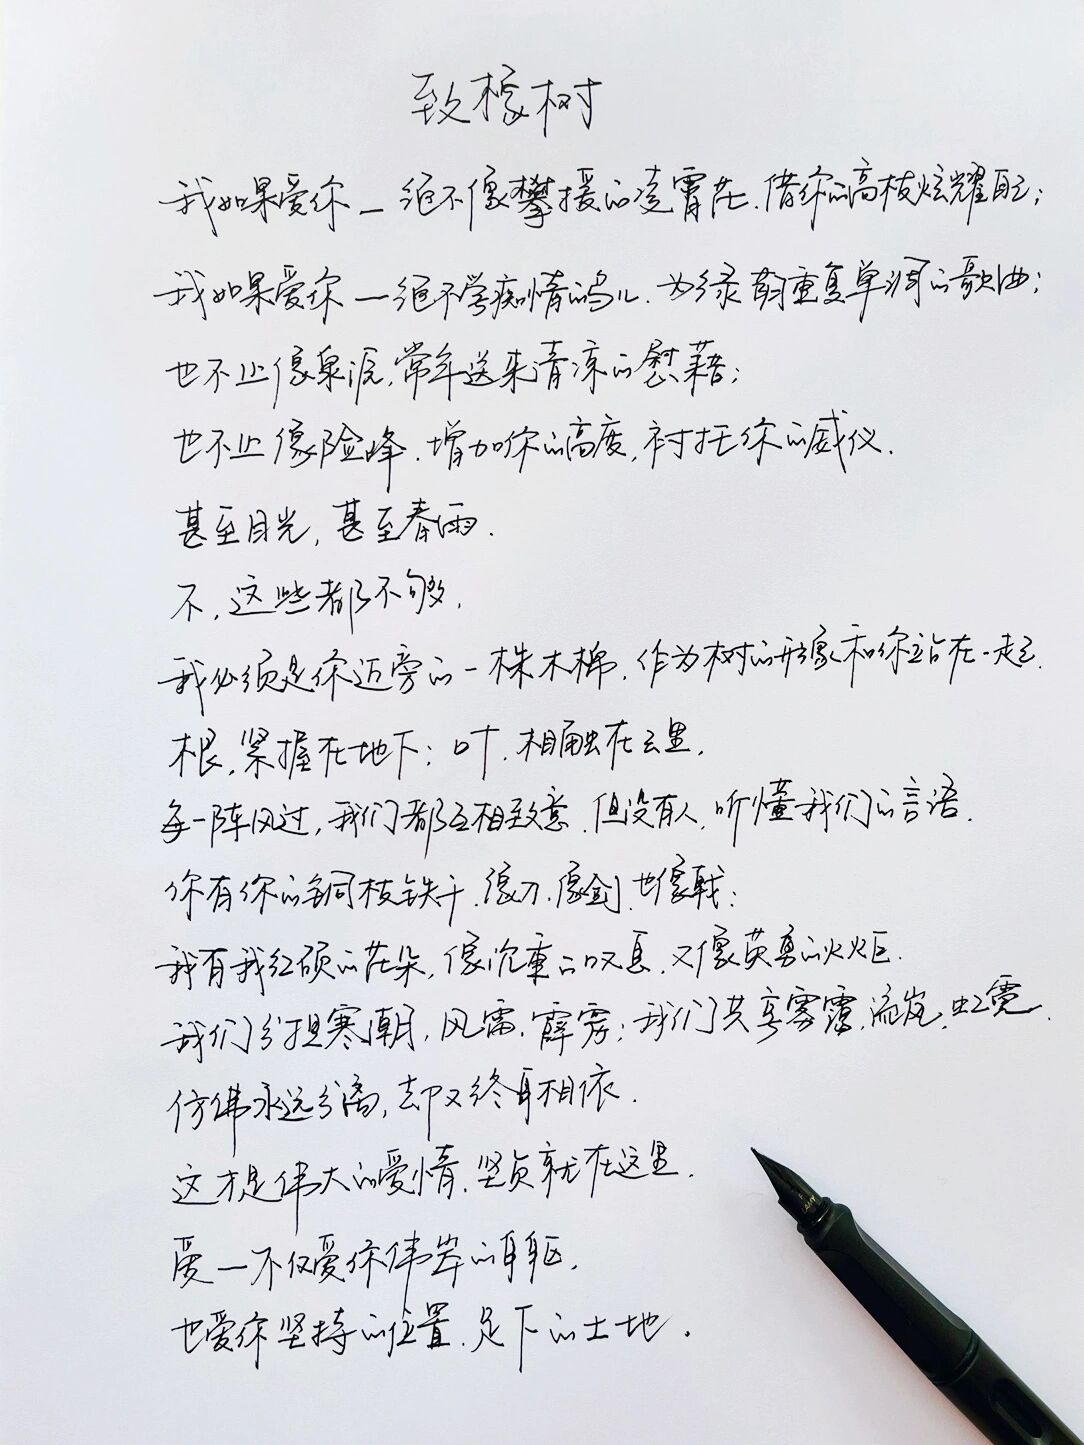 致橡树
我如果爱你—绝不像攀援的凌霄花,借你的高枝炫耀自己;
我如果爱你—绝不学痴情的鸟儿,为绿荫重复单调的歌曲;
也不止像泉源,常年送来清凉的慰藉;
也不止像险峰,增加你的高度,衬托你的威仪.
甚至日光,甚至春雨.
不,这些都不够,
我必须是你近旁的一株木棉,作为树的形象和你站在一起.
根,紧握在地下;叶,相触在云里,
每一阵风过,我们都互相致意,但没有人,听懂我们的言语.
你有你的铜枝铁干,像刀,像剑,也像戟;
我有我红硕的花朵,像沉重的叹息,又像英勇的火炬.
我们分担寒潮,风雷,霹雳;我们共享雾霭,流岚,虹霓.
仿佛永远分离,却又终身相依.
这才是伟大的爱情,坚贞就在这里.
爱—不仅爱你伟岸的身躯,
也爱你坚持的位置,足下的土地.
LAMY